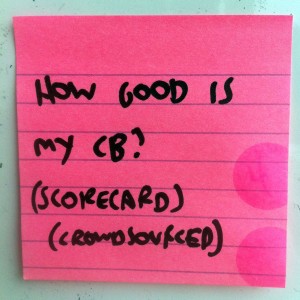 HOW GOOD IS
MY CB?
(SCORECARD)
(CROWDSOURCED)